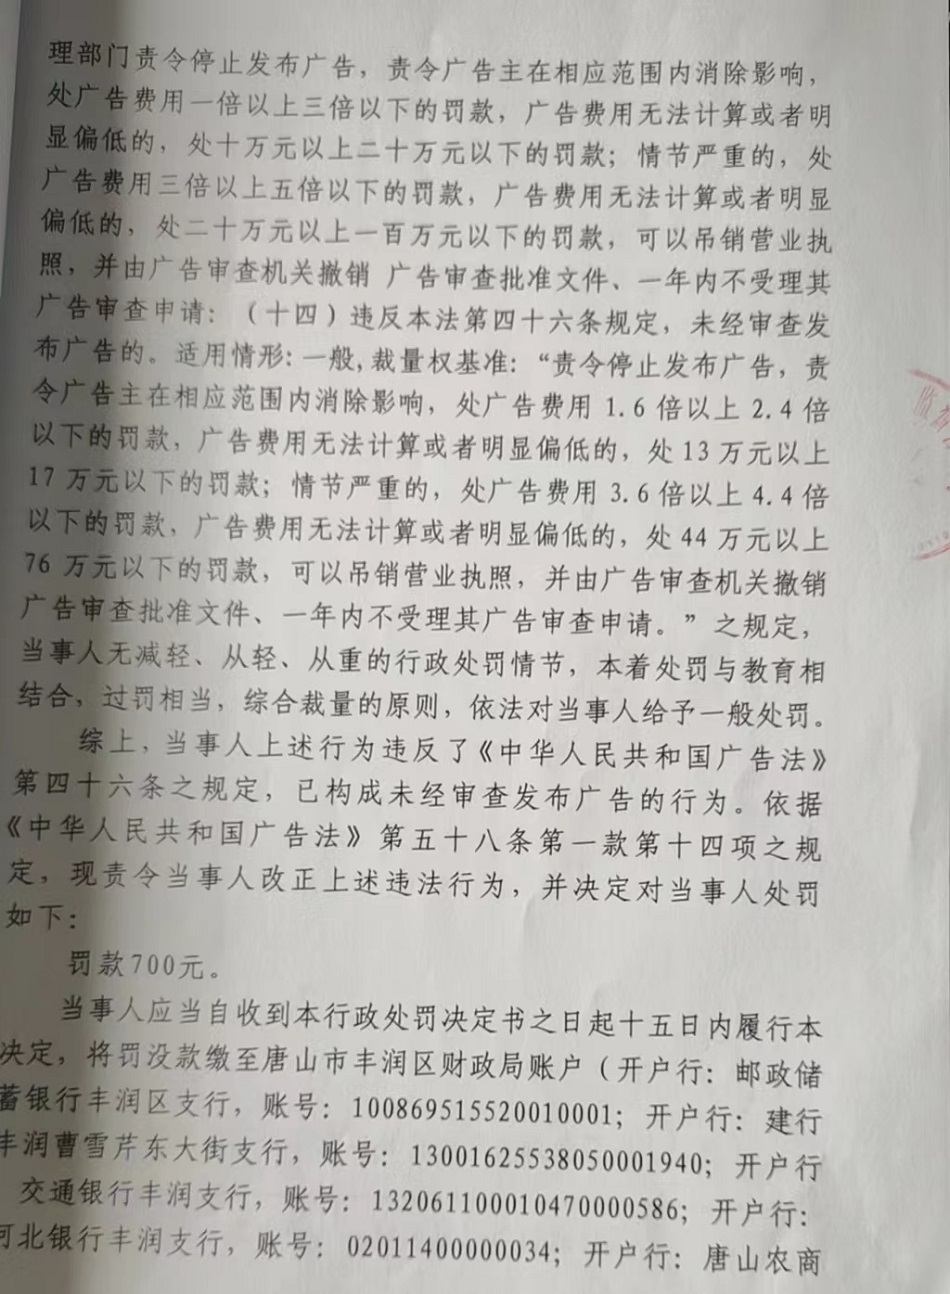 理部门责令停止发布广告，责令广告主在相应范围内消除影响，
处广告费用一倍以上三倍以下的罚款，广告费用无法计算或者明
显偏低的，处十万元以上二十万元以下的罚款；情节严重的，处
广告费用三倍以上五倍以下的罚款，广告费用无法计算或者明显
偏低的，处二十万元以上一百万元以下的罚款，可以吊销营业执
照，并由广告审查机关撤销 广告审查批准文件、一年内不受理其
广告审查申请：（十四）违反本法第四十六条规定，未经审查发
布广告的。适用情形：一般，裁量权基准：“责令停止发布广告，责
令广告主在相应范围内消除影响，处广告费用 1.6 倍以上 2.4 倍
以下的罚款，广告费用无法计算或者明显偏低的，处 13 万元以上
17 万元以下的罚款；情节严重的，处广告费用 3.6 倍以上 4.4 倍
以下的罚款，广告费用无法计算或者明显偏低的，处 44 万元以上
76 万元以下的罚款，可以吊销营业执照，并由广告审查机关撤销
广告审查批准文件、一年内不受理其广告审查申请。”之规定，
当事人无减轻、从轻、从重的行政处罚情节，本着处罚与教育相
结合，过罚相当，综合裁量的原则，依法对当事人给予一般处罚。
综上，当事人上述行为违反了《中华人民共和国广告法》
第四十六条之规定，已构成未经审查发布广告的行为。依据
《中华人民共和国广告法》第五十八条第一款第十四项之规
定，现责令当事人改正上述违法行为，并决定对当事人处罚
如下：
罚款700元。
当事人应当自收到本行政处罚决定书之日起十五日内履行本
决定，将罚没款缴至唐山市丰润区财政局账户（开户行：邮政储
蓄银行丰润区支行，账号：100869515520010001；开户行：建行
丰润曹雪芹东大街支行，账号：13001625538050001940；开户行
交通银行丰润支行，账号：132061100010470000586；开户行：
河北银行丰润支行，账号：02011400000034；开户行：唐山农商